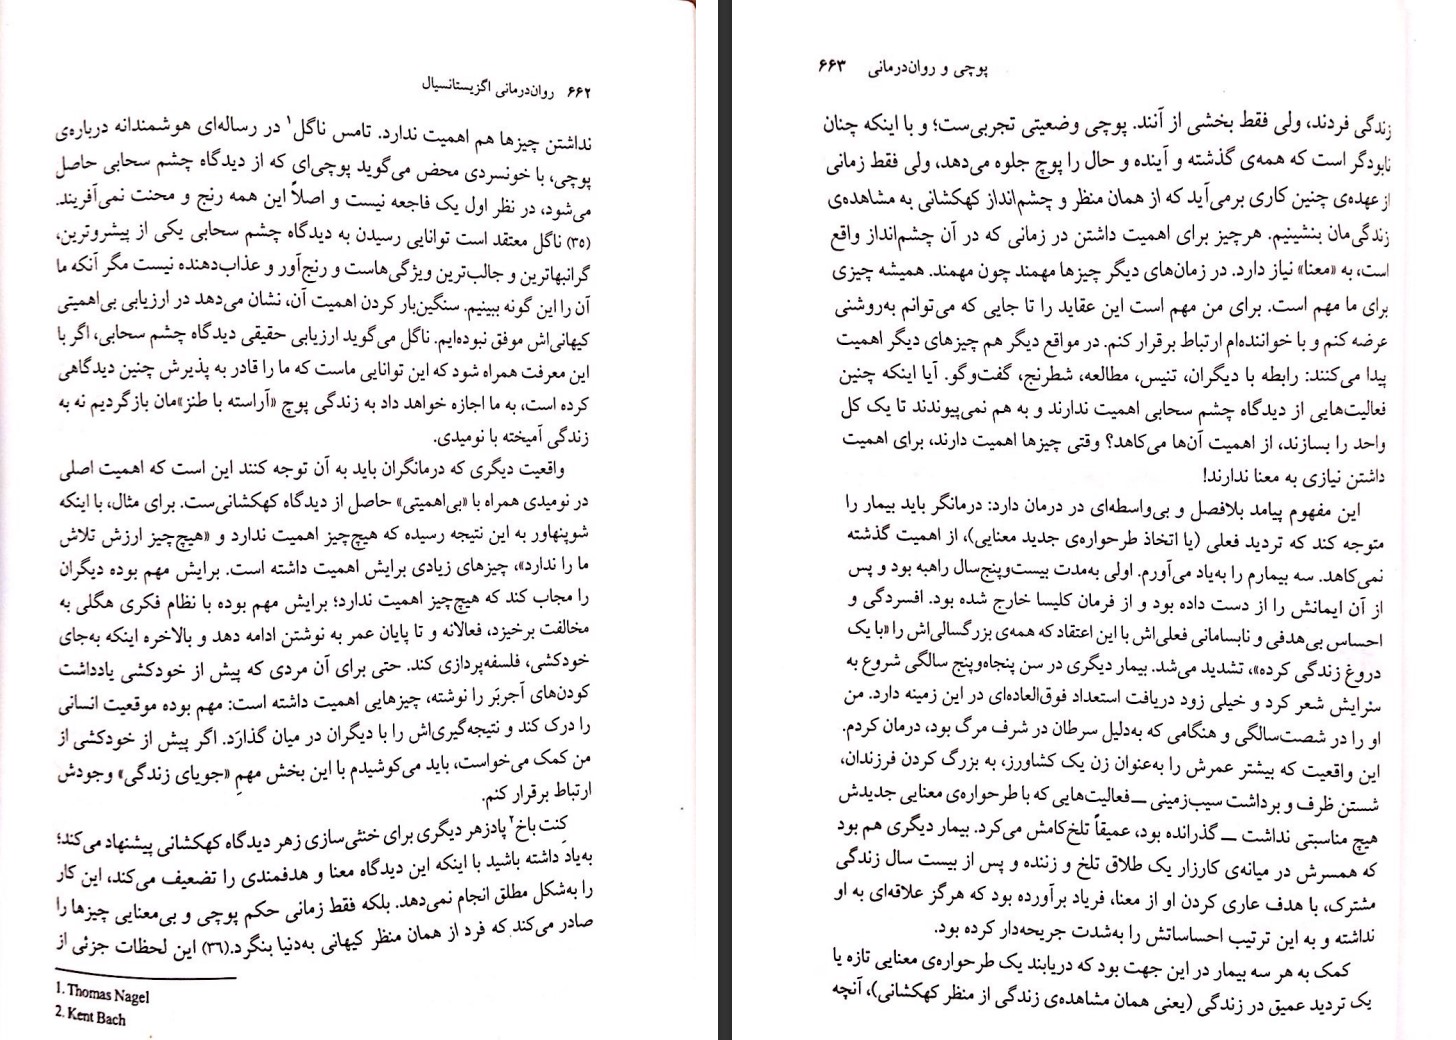 ۶۶۲ روان‌درمانی اگزیستانسیال
نداشتن چیزها هم اهمیت ندارد. تامس ناگل۱ در رساله‌ای هوشمندانه درباره‌ی
پوچی، با خونسردی محض می‌گوید پوچی‌ای که از دیدگاه چشم سحابی حاصل
می‌شود، در نظر اول یک فاجعه نیست و اصلاً این همه رنج و محنت نمی‌آفریند.
(۳۵) ناگل معتقد است توانایی رسیدن به دیدگاه چشم سحابی یکی از پیشروترین،
گرانبهاترین و جالب‌ترین ویژگی‌هاست و رنج‌آور و عذاب‌دهنده نیست مگر آنکه ما
آن را این گونه ببینیم. سنگین‌بار کردن اهمیت آن، نشان می‌دهد در ارزیابی بی‌اهمیتی
کیهانی‌اش موفق نبوده‌ایم. ناگل می‌گوید ارزیابی حقیقی دیدگاه چشم سحابی، اگر با
این معرفت همراه شود که این توانایی ماست که ما را قادر به پذیرش چنین دیدگاهی
کرده است، به ما اجازه خواهد داد به زندگی پوچ «آراسته با طنز»مان بازگردیم نه به
زندگی آمیخته با نومیدی.
واقعیت دیگری که درمانگران باید به آن توجه کنند این است که اهمیت اصلی
در نومیدی همراه با «بی‌اهمیتی» حاصل از دیدگاه کهکشانی‌ست. برای مثال، با اینکه
شوپنهاور به این نتیجه رسیده که هیچ‌چیز اهمیت ندارد و «هیچ‌چیز ارزش تلاش
ما را ندارد»، چیزهای زیادی برایش اهمیت داشته است. برایش مهم بوده دیگران
را مجاب کند که هیچ‌چیز اهمیت ندارد؛ برایش مهم بوده با نظام فکری هگلی به
مخالفت برخیزد، فعالانه و تا پایان عمر به نوشتن ادامه دهد و بالاخره اینکه به‌جای
خودکشی، فلسفه‌پردازی کند. حتی برای آن مردی که پیش از خودکشی یادداشت
کودن‌های آجربَر را نوشته، چیزهایی اهمیت داشته است: مهم بوده موقعیت انسانی
را درک کند و نتیجه‌گیری‌اش را با دیگران در میان گذارَد. اگر پیش از خودکشی از
من کمک می‌خواست، باید می‌کوشیدم با این بخش مهمِ «جویای زندگی» وجودش
ارتباط برقرار کنم.
کِنت باخ۲ پادزهر دیگری برای خنثی‌سازی زهر دیدگاه کهکشانی پیشنهاد می‌کند؛
به‌یاد داشته باشید با اینکه این دیدگاه معنا و هدفمندی را تضعیف می‌کند، این کار
را به‌شکل مطلق انجام نمی‌دهد. بلکه فقط زمانی حکم پوچی و بی‌معنایی چیزها را
صادر می‌کند که فرد از همان منظر کیهانی به‌دنیا بنگرد.(۳۶) این لحظات جزئی از
1. Thomas Nagel
2. Kent Bach
پوچی و روان‌درمانی ۶۶۳
زندگی فردند، ولی فقط بخشی از آنند. پوچی وضعیتی تجربی‌ست؛ و با اینکه چنان
نابودگر است که همه‌ی گذشته و آینده و حال را پوچ جلوه می‌دهد، ولی فقط زمانی
از عهده‌ی چنین کاری برمی‌آید که از همان منظر و چشم‌انداز کهکشانی به مشاهده‌ی
زندگی‌مان بنشینیم. هرچیز برای اهمیت داشتن در زمانی که در آن چشم‌انداز واقع
است، به «معنا» نیاز دارد. در زمان‌های دیگر چیزها مهمند چون مهمند. همیشه چیزی
برای ما مهم است. برای من مهم است این عقاید را تا جایی که می‌توانم به‌روشنی
عرضه کنم و با خواننده‌ام ارتباط برقرار کنم. در مواقع دیگر هم چیزهای دیگر اهمیت
پیدا می‌کنند: رابطه با دیگران، تنیس، مطالعه، شطرنج، گفت‌وگو. آیا اینکه چنین
فعالیت‌هایی از دیدگاه چشم سحابی اهمیت ندارند و به هم نمی‌پیوندند تا یک کل
واحد را بسازند، از اهمیت آن‌ها می‌کاهد؟ وقتی چیزها اهمیت دارند، برای اهمیت
داشتن نیازی به معنا ندارند!
این مفهوم پیامد بلافصل و بی‌واسطه‌ای در درمان دارد: درمانگر باید بیمار را
متوجه کند که تردید فعلی (یا اتخاذ طرحواره‌ی جدید معنایی)، از اهمیت گذشته
نمی‌کاهد. سه بیمارم را به‌یاد می‌آورم. اولی به‌مدت بیست‌وپنج‌سال راهبه بود و پس
از آن ایمانش را از دست داده بود و از فرمان کلیسا خارج شده بود. افسردگی و
احساس بی‌هدفی و نابسامانی فعلی‌اش با این اعتقاد که همه‌ی بزرگسالی‌اش را «با یک
دروغ زندگی کرده»، تشدید می‌شد. بیمار دیگری در سن پنجاه‌وپنج سالگی شروع به
سرایش شعر کرد و خیلی زود دریافت استعداد فوق‌العاده‌ای در این زمینه دارد. من
او را در شصت‌سالگی و هنگامی که به‌دلیل سرطان در شرف مرگ بود، درمان کردم.
این واقعیت که بیشتر عمرش را به‌عنوان زن یک کشاورز، به بزرگ کردن فرزندان،
شستن ظرف و برداشت سیب‌زمینی ــ فعالیت‌هایی که با طرحواره‌ی معنایی جدیدش
هیچ مناسبتی نداشت ــ گذرانده بود، عمیقاً تلخ‌کامش می‌کرد. بیمار دیگری هم بود
که همسرش در میانه‌ی کارزار یک طلاق تلخ و زننده و پس از بیست سال زندگی
مشترک، با هدف عاری کردن او از معنا، فریاد برآورده بود که هرگز علاقه‌ای به او
نداشته و به این ترتیب احساساتش را به‌شدت جریحه‌دار کرده بود.
کمک به هر سه بیمار در این جهت بود که دریابند یک طرحواره‌ی معنایی تازه یا
یک تردید عمیق در زندگی (یعنی همان مشاهده‌ی زندگی از منظر کهکشانی)، آنچه